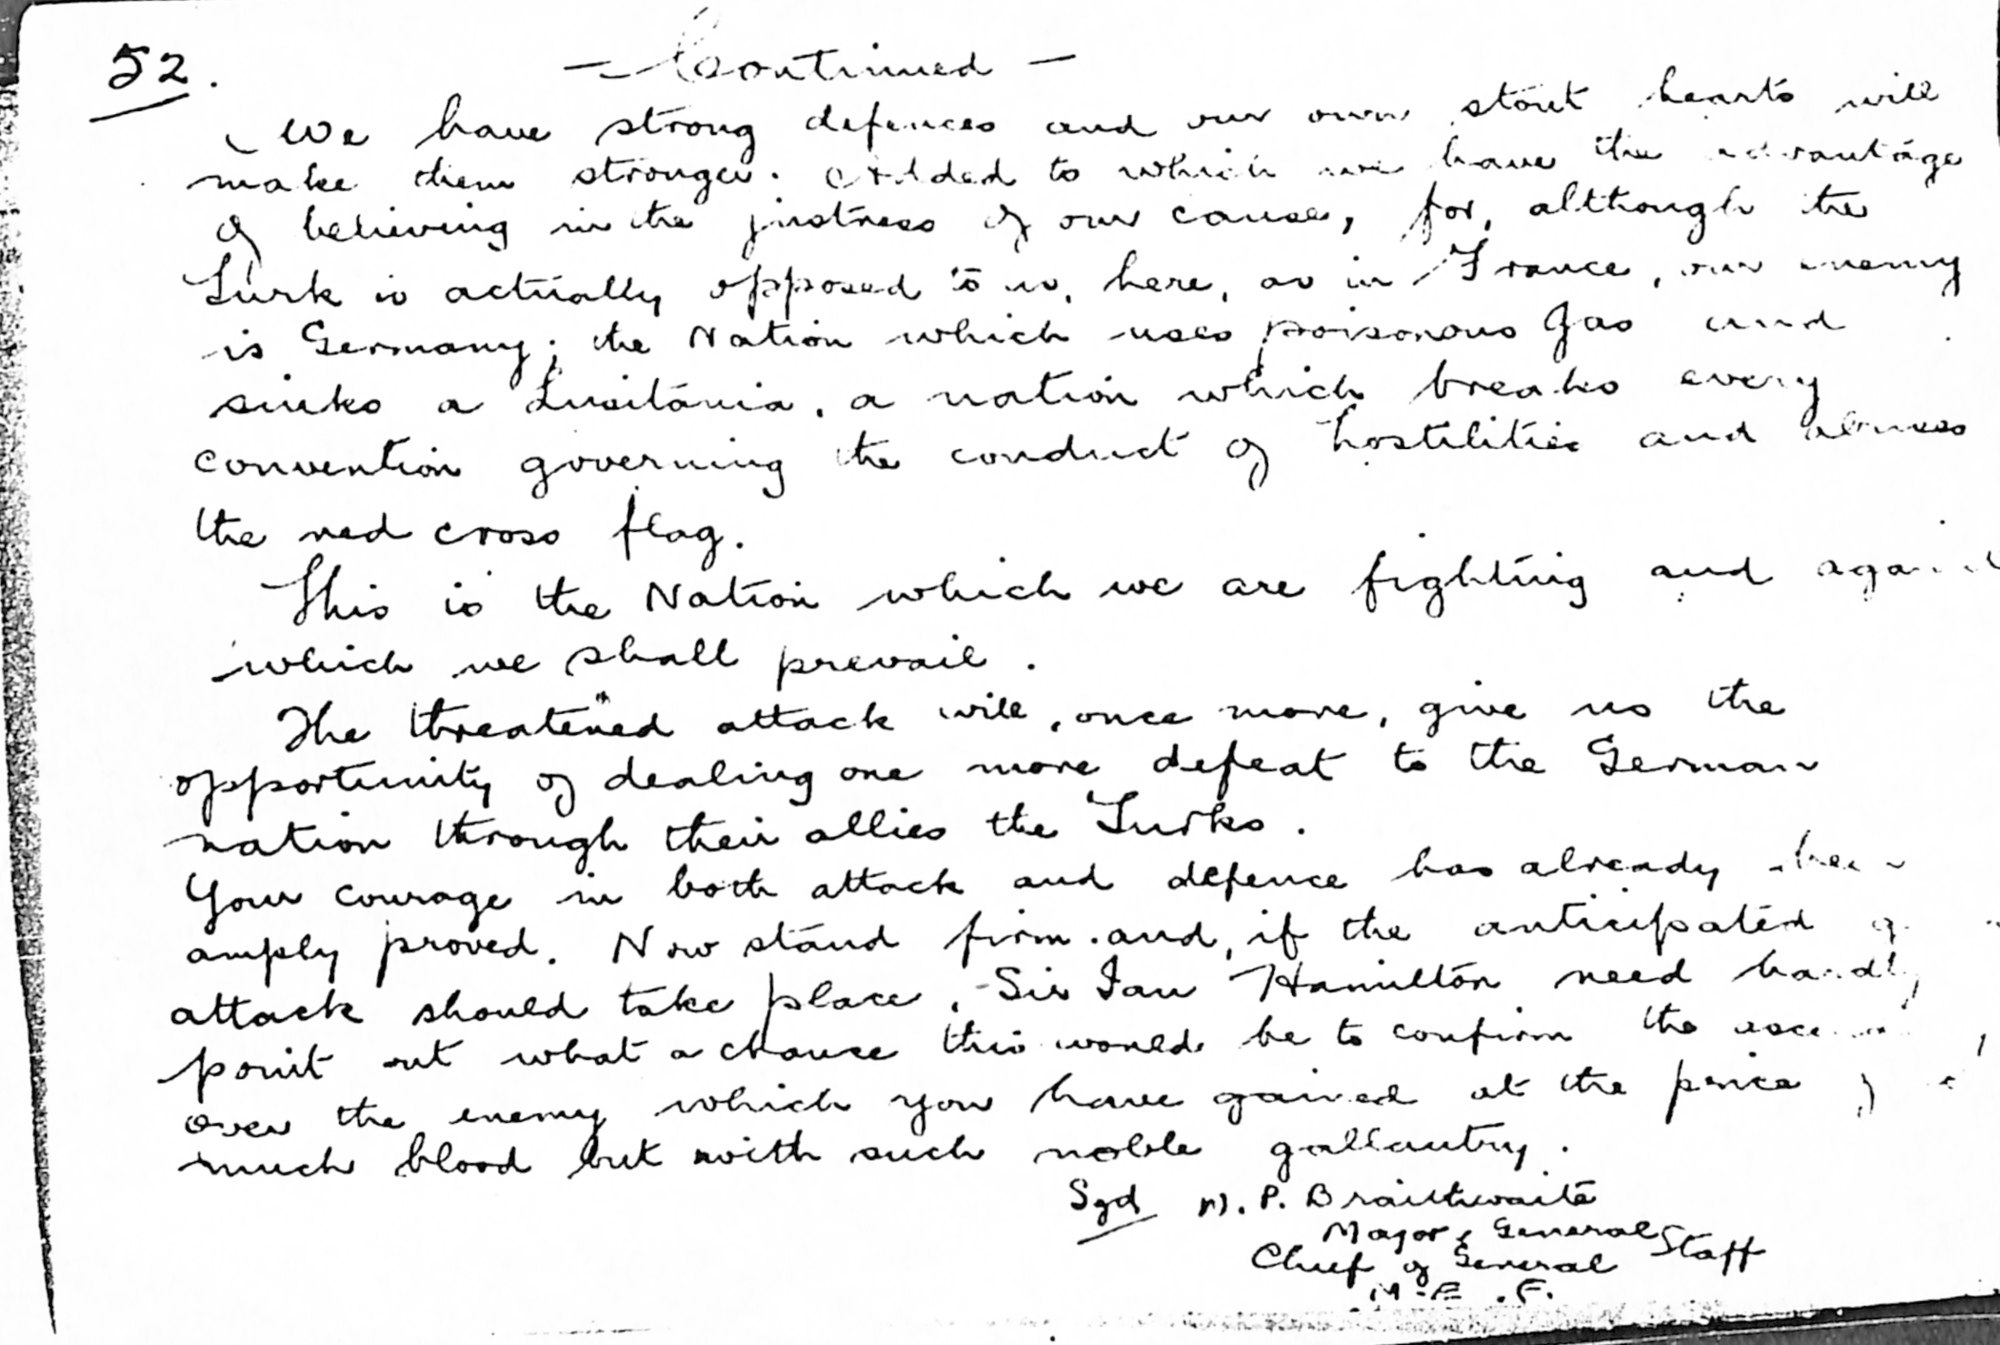 52.
— Continued —
We have strong defences and our own stout hearts will
make them stronger. Added to which we have the advantage
of believing in the justness of our cause, for, although the
Turk is actually opposed to us, here, as in France, our enemy
is Germany; the Nation which uses poisonous gas and
sinks a Lusitania, a nation which breaks every
convention governing the conduct of hostilities and abuses
the red cross flag.
This is the Nation which we are fighting and
which we shall prevail.
The threatened attack will, once more, give us the
opportunity of dealing one more defeat to the German
nation through their allies the Turks.
Your courage in both attack and defence has already been
amply proved. Now stand firm. and, if the anticipated
attack should take place, Sir Ian Hamilton need hardly
point out what a chance this would be to confirm the
over the enemy which you have gained at the price of
much blood but with such noble gallantry.
Sgd W. P. Braithwaite
Major General
Chief of General Staff
M.E.F.